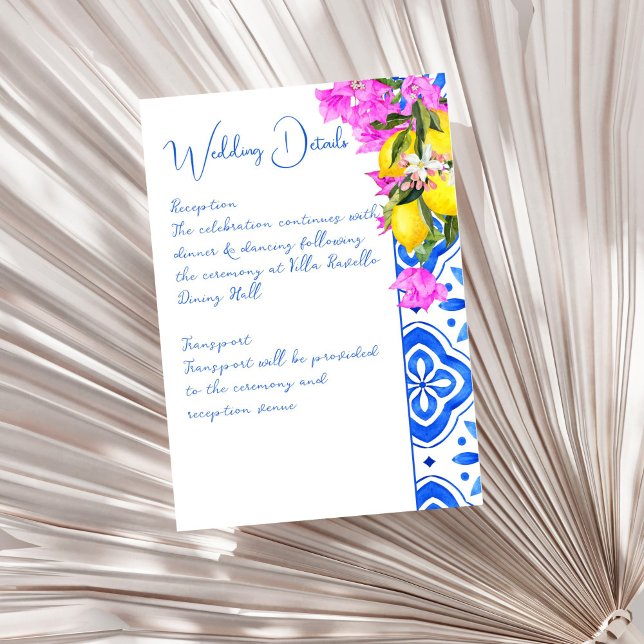 Wedding Details
Reception
The celebration continues with
dinner & dancing following
the ceremony at Villa Ravello
Dining Hall
Transport
Transport will be provided
to the ceremony and
reception venue